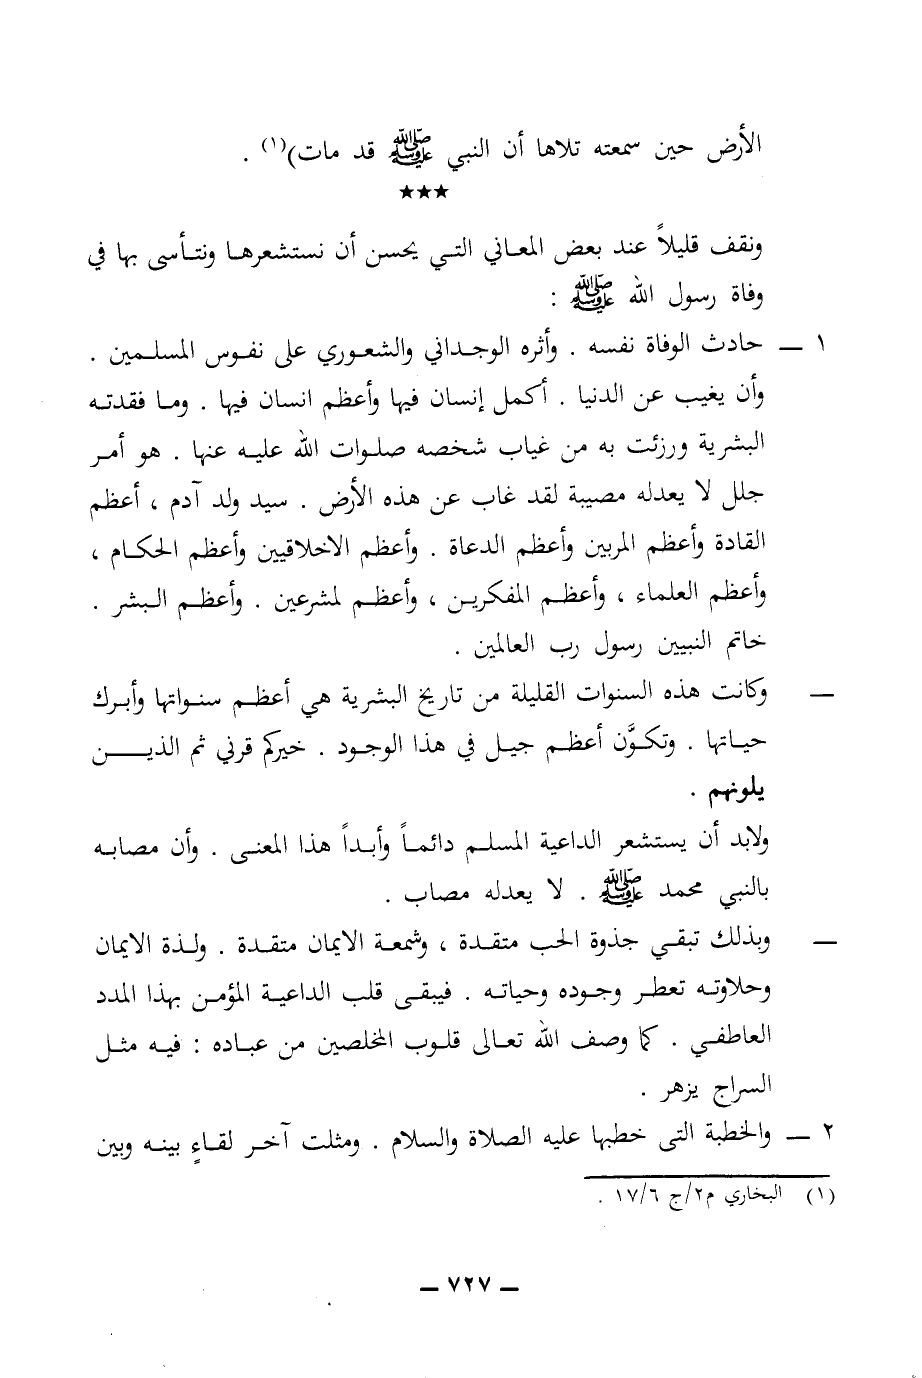 الأرض حين سمعته تلاها أن النبي ﷺ قد مات)(١) .
★★★
ونقف قليلاً عند بعض المعاني التي يحسن أن نستشعرها ونتأسى بها في
وفاة رسول الله ﷺ :
١ ـ حادث الوفاة نفسه . وأثره الوجداني والشعوري على نفوس المسلمين .
وأن يغيب عن الدنيا . أكمل إنسان فيها وأعظم انسان فيها . وما فقدته
البشرية ورزئت به من غياب شخصه صلوات الله عليه عنها . هو أمر
جلل لا يعدله مصيبة لقد غاب عن هذه الأرض . سيد ولد آدم ، أعظم
القادة وأعظم المربين وأعظم الدعاة . وأعظم الاخلاقيين وأعظم الحكام ،
وأعظم العلماء ، وأعظم المفكرين ، وأعظم لمشرعين . وأعظم البشر .
خاتم النبيين رسول رب العالمين .
ـ وكانت هذه السنوات القليلة من تاريخ البشرية هي أعظم سنواتها وأبرك
حياتها . وتكوَّن أعظم جيل في هذا الوجود . خيركم قرني ثم الذين
يلونهم .
ولابد أن يستشعر الداعية المسلم دائماً وأبداً هذا المعنى . وأن مصابه
بالنبي محمد ﷺ . لا يعدله مصاب .
ـ وبذلك تبقى جذوة الحب متقدة ، وشمعة الايمان متقدة . ولذة الايمان
وحلاوته تعطر وجوده وحياته . فيبقى قلب الداعية المؤمن بهذا المدد
العاطفي . كما وصف الله تعالى قلوب المخلصين من عباده : فيه مثل
السراج يزهر .
٢ ـ والخطبة التى خطبها عليه الصلاة والسلام . ومثلت آخر لقاءٍ بينه وبين
(١) البخاري م٢/ج ١٧/٦ .
ـ ٧٢٧ ـ